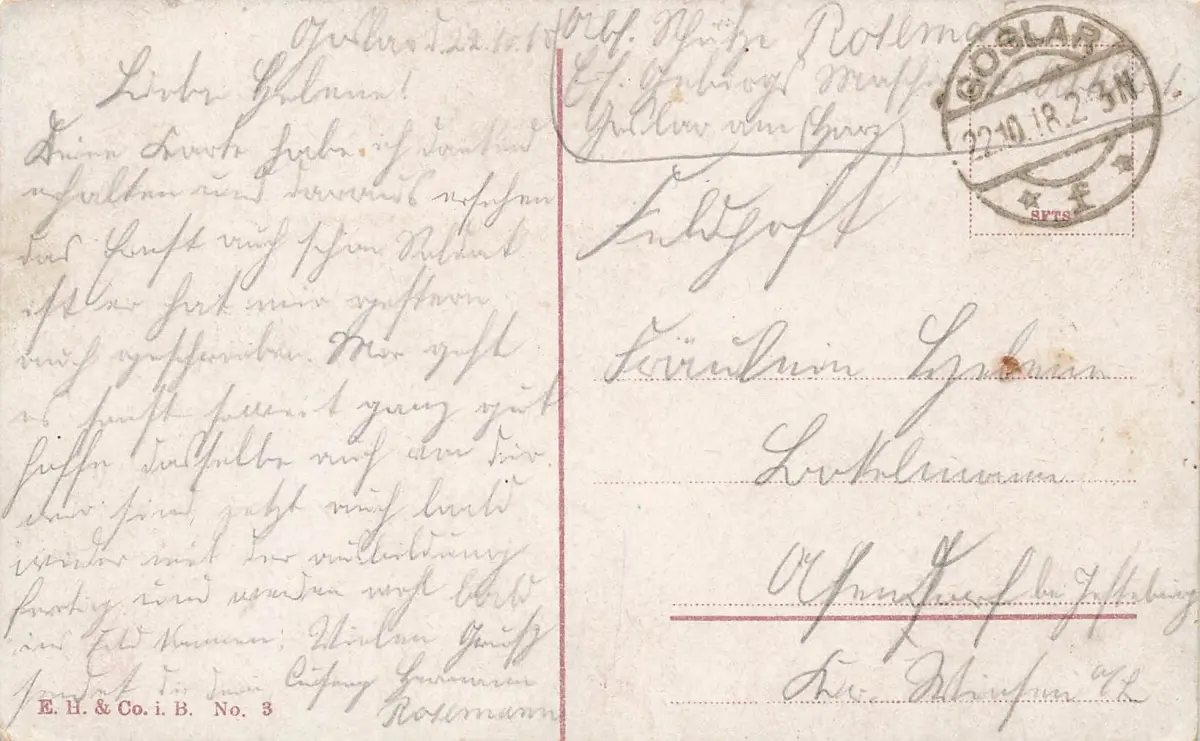 Goslar d. 22.10.18
Liebe Helene!
Deine Karte habe ich dankend
erhalten und daraus ersehen
das Ernst auch schon Soldat
ist er hat mir gestern
auch geschrieben. Mir geht
es sonst soweit ganz gut
hoffe dasselbe auch von dir.
wir sind jetzt auch bald
wieder mit der ausbildung
fertig und werden wohl bald
ins Feld kommen. Vielen Grüße
sendet dir dein Hermann
Rosemann
E. H. & Co. i. B. No. 3
Abs. Schütze Rosemann
Ers. Gebirgs Masch.
Goslar am Harz
GOSLAR
22.10.18.2-3N
* f *
Feldpost
Fräulein Helene
Bockelmann
Asendorf bei Jesteburg
Kr. Winsen a/L